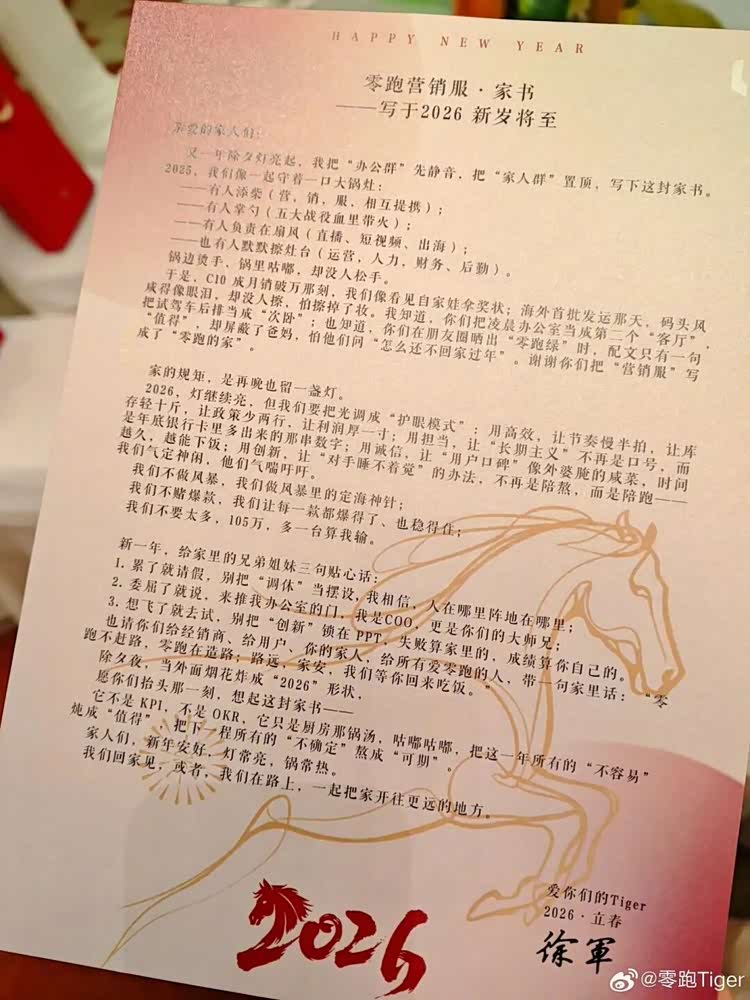 HAPPY NEW YEAR
零跑营销服·家书
——写于2026 新岁将至
亲爱的家人们：
又一年除夕灯亮起，我把“办公群”先静音，把“家人群”置顶，写下这封家书。
2025，我们像一起守着一口大锅灶：
——有人添柴（营，销，服，相互提携）；
——有人掌勺（五大战役血里带火）；
——有人负责在扇风（直播、短视频、出海）；
——也有人默默擦灶台（运营，人力，财务、后勤）。
锅边烫手，锅里咕嘟，却没人松手。
于是，C10 成月销破万那刻，我们像看见自家娃拿奖状；海外首批发运那天，码头风
咸得像眼泪，却没人擦，怕擦掉了妆。我知道，你们把凌晨办公室当成第二个“客厅”，
把试驾车后排当成“次卧”；也知道，你们在朋友圈晒出“零跑绿”时，配文只有一句
“值得”，却屏蔽了爸妈，怕他们问“怎么还不回家过年”。谢谢你们把“营销服”写
成了“零跑的家”。
家的规矩，是再晚也留一盏灯。
2026，灯继续亮，但我们要把光调成“护眼模式”：用高效，让节奏慢半拍，让库
存轻十斤，让政策少两行，让利润厚一寸；用担当，让“长期主义”不再是口号，而
是年底银行卡里多出来的那串数字；用诚信，让“用户口碑”像外婆腌的咸菜，时间
越久，越能下饭；用创新，让“对手睡不着觉”的办法，不再是陪熬，而是陪跑——
我们气定神闲，他们气喘吁吁。
我们不做风暴，我们做风暴里的定海神针；
我们不赌爆款，我们让每一款都爆得了、也稳得住；
我们不要太多，105万，多一台算我输。
新一年，给家里的兄弟姐妹三句贴心话：
1. 累了就请假，别把“调休”当摆设，我相信，人在哪里阵地在哪里；
2. 委屈了就说，来推我办公室的门，我是COO，更是你们的大师兄；
3. 想飞了就去试，别把“创新”锁在 PPT，失败算家里的，成绩算你自己的。
也请你们给经销商、给用户、你的家人，给所有爱零跑的人，带一句家里话：“零
跑不赶路，零跑在造路；路远，家安，我们等你回来吃饭。”
除夕夜，当外面烟花炸成“2026”形状，
愿你们抬头那一刻，想起这封家书——
它不是 KPI，不是 OKR，它只是厨房那锅汤，咕嘟咕嘟，把这一年所有的“不容易”
炖成“值得”，把下一程所有的“不确定”熬成“可期”。
家人们，新年安好，灯常亮，锅常热。
我们回家见，或者，我们在路上，一起把家开往更远的地方。
爱你们的Tiger
2026·立春
徐军
2026
@零跑Tiger